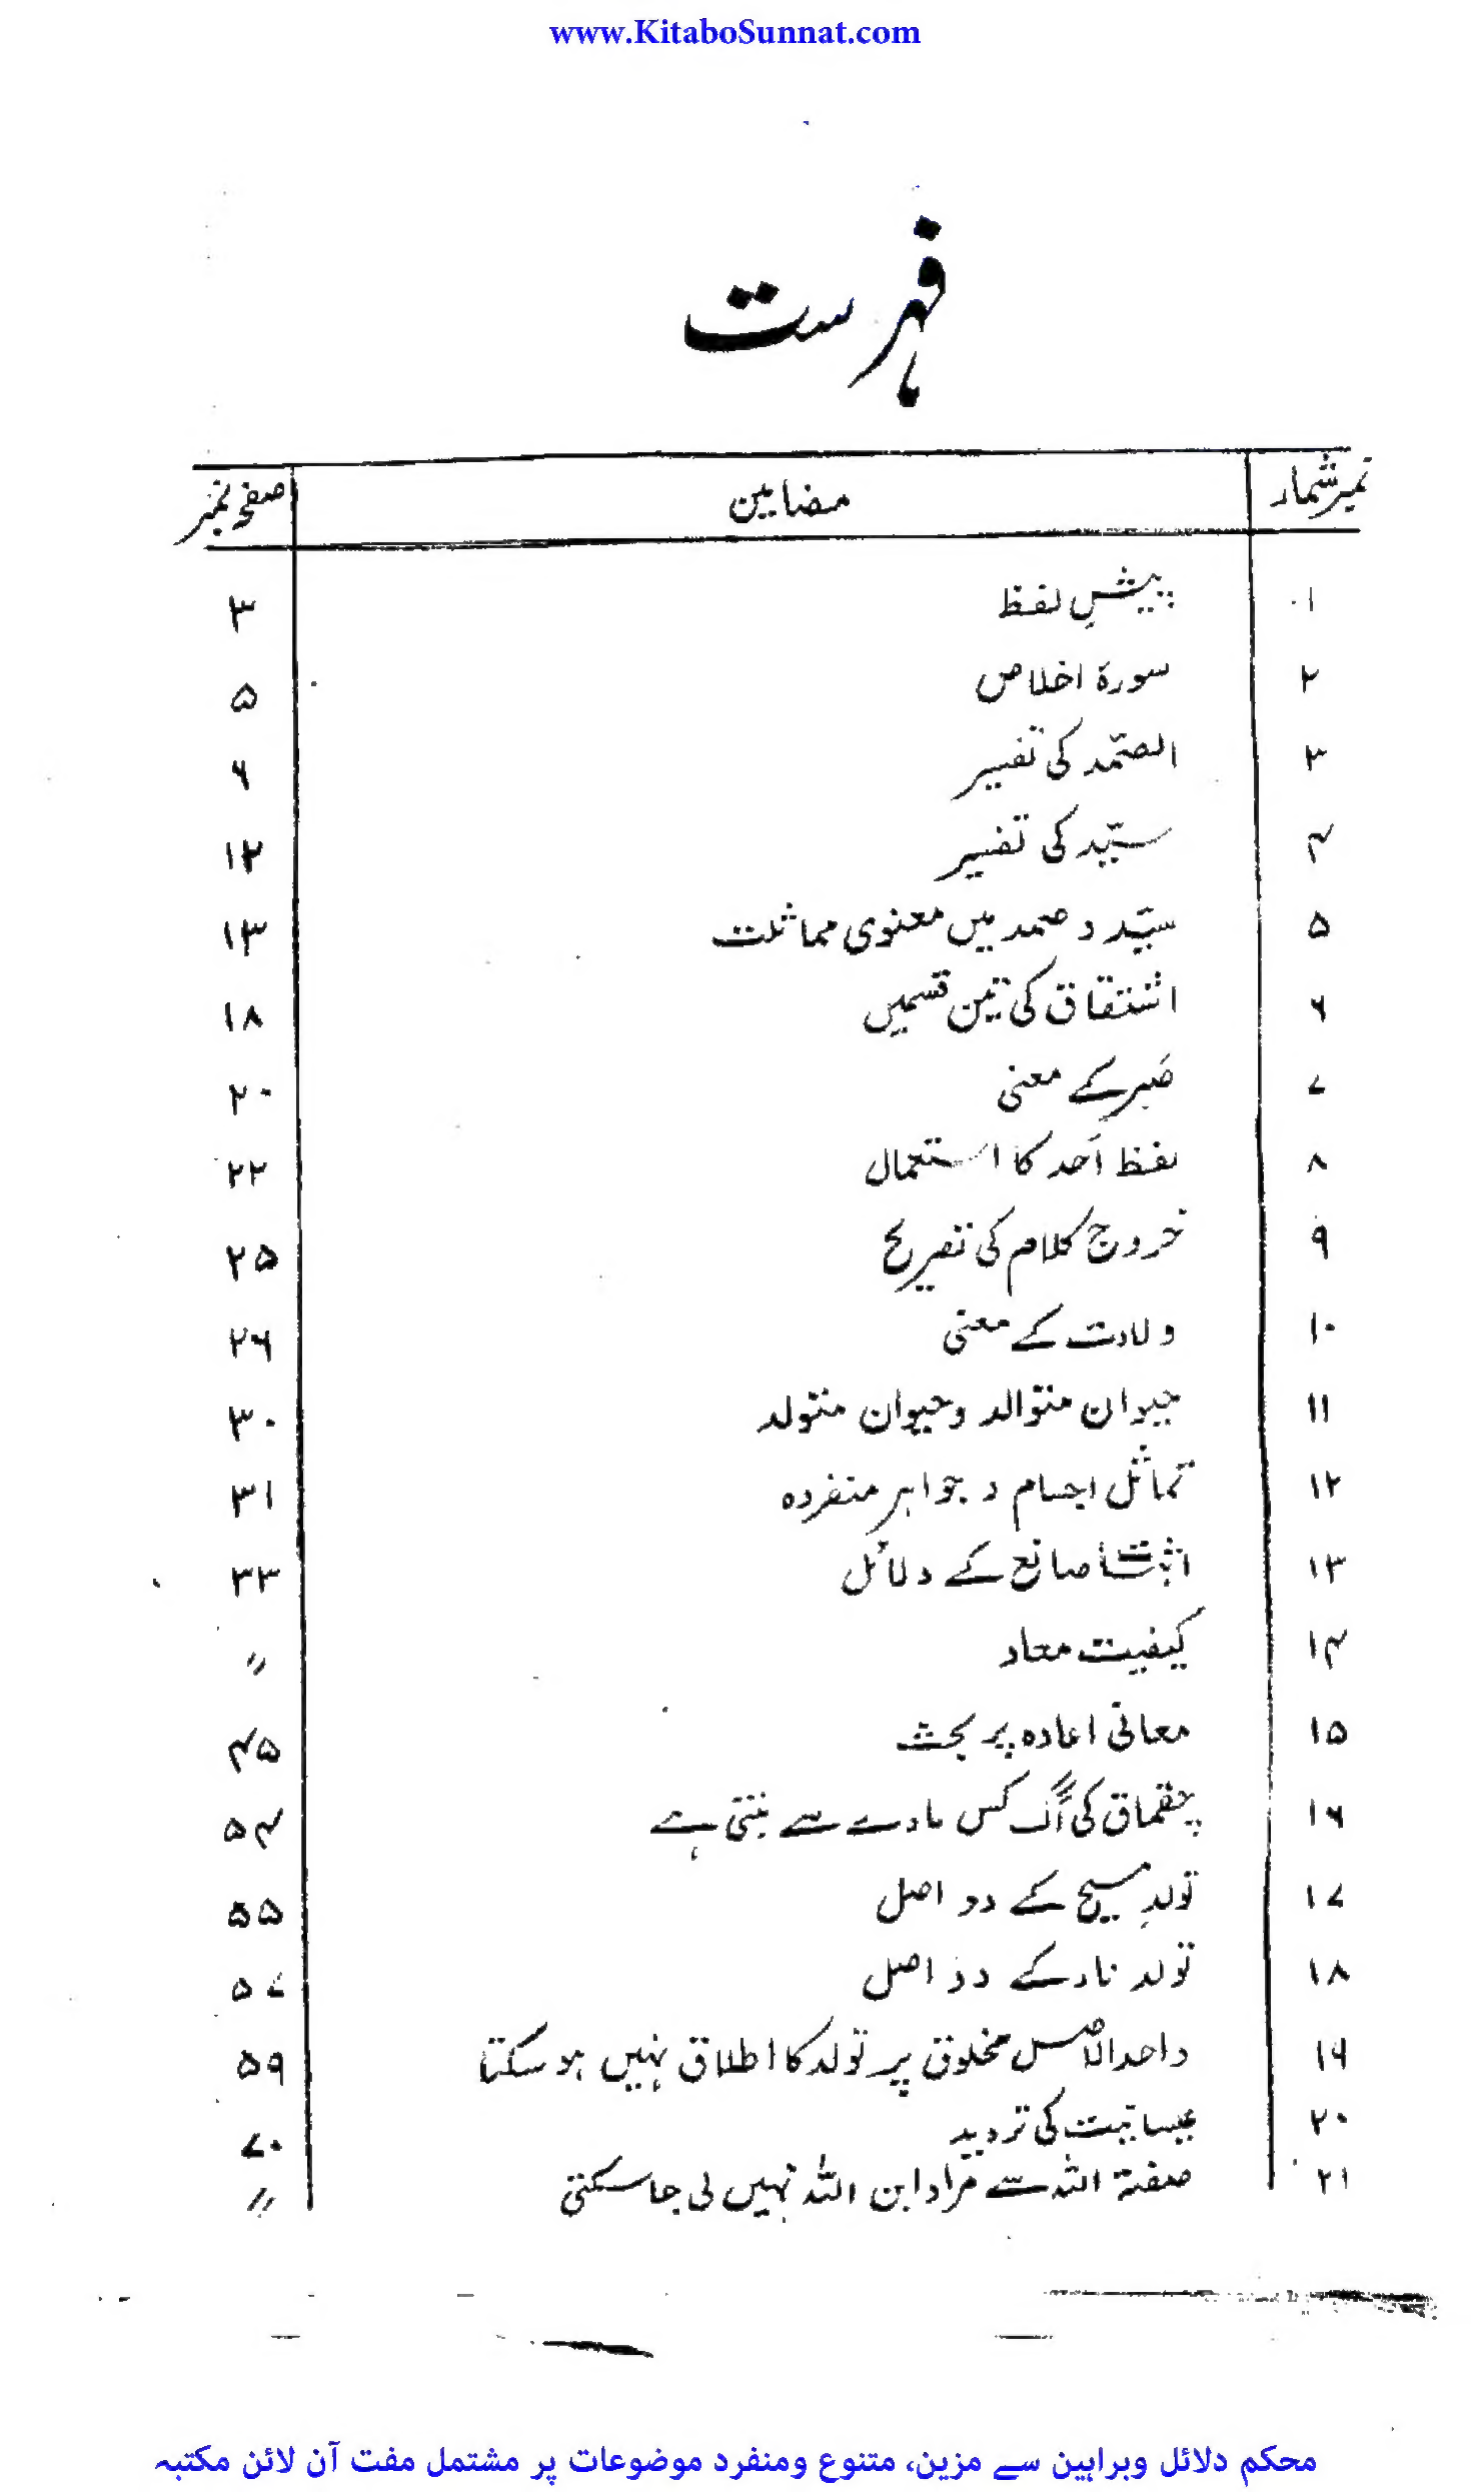 www.KitaboSunnat.com
فہرست
نمبر شمار مضامین صفحہ نمبر
۱ پیش لفظ ۳
۲ سورۃ اخلاص ۵
۳ الصّمد کی تفسیر ۶
۴ سیّد کی تفسیر ۱۲
۵ سیّد و صمد میں معنوی مماثلت ۱۳
۶ اشتقاق کی تین قسمیں ۱۸
۷ صَبر کے معنی ۲۰
۸ لفظ اَحد کا استعمال ۲۲
۹ خروج کلام کی تصریح ۲۵
۱۰ ولادت کے معنی ۲۶
۱۱ حیوان متوالد و حیوان متولد ۳۰
۱۲ تماثل اجسام و جواہر منفردہ ۳۱
۱۳ اثبات صانع کے دلائل ۳۳
۱۴ کیفیت معاد 〃
۱۵ معانی اعادہ پر بحث ۴۵
۱۶ چقماق کی آگ کس مادے سے بنتی ہے ۵۴
۱۷ تولدِ مسیح کے دو اصل ۵۵
۱۸ تولد نار کے دو اصل ۵۷
۱۹ واحد الاصل مخلوق پر تولد کا اطلاق نہیں ہو سکتا ۵۹
۲۰ عیسائیت کی تردید ۷۰
۲۱ صفتہ اللہ سے مراد ابن اللہ نہیں لی جا سکتی 〃
محکم دلائل وبراہین سے مزین، متنوع ومنفرد موضوعات پر مشتمل مفت آن لائن مکتبہ